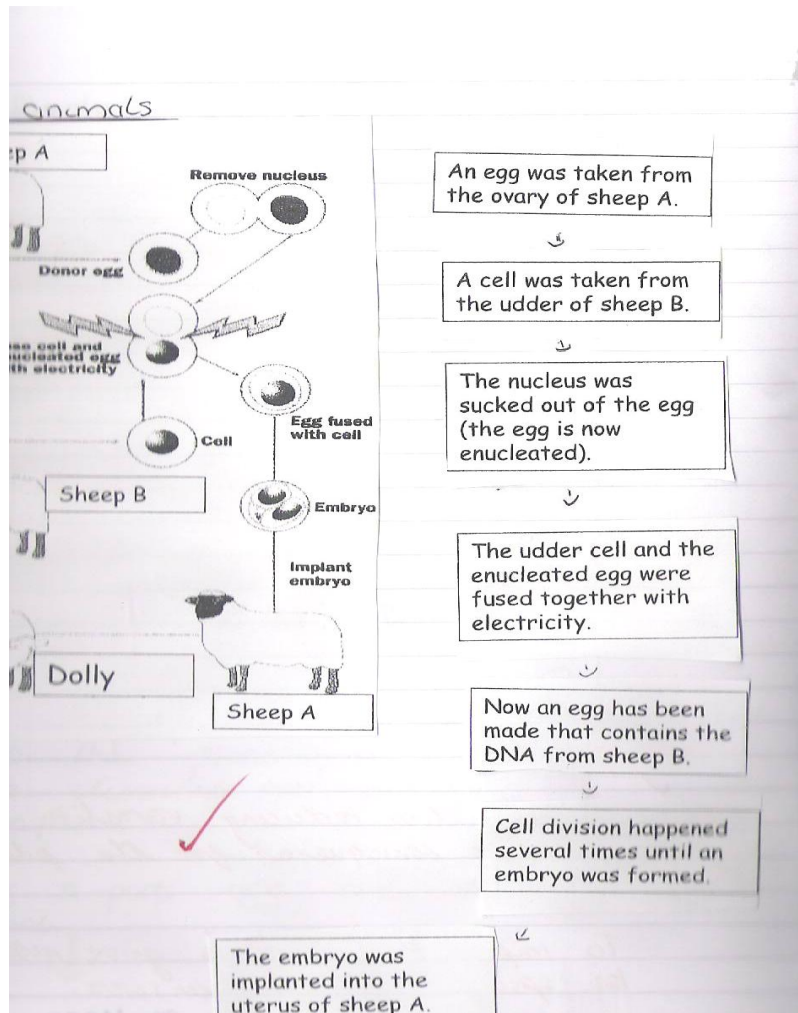 animals
ep A
Remove nucleus
Donor egg
se cell and
nucleated egg
th electricity
Cell
Egg fused
with cell
Sheep B
Embryo
Implant
embryo
Dolly
Sheep A
An egg was taken from
the ovary of sheep A.
A cell was taken from
the udder of sheep B.
The nucleus was
sucked out of the egg
(the egg is now
enucleated).
The udder cell and the
enucleated egg were
fused together with
electricity.
Now an egg has been
made that contains the
DNA from sheep B.
Cell division happened
several times until an
embryo was formed.
The embryo was
implanted into the
uterus of sheep A.